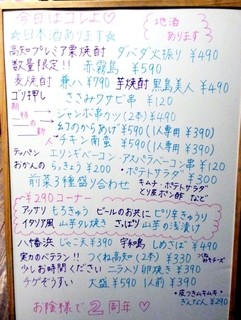 今日はコレよ♡
地酒あります
☆日本酒あります☆
高知プレミア栗焼酎 ダバダ火振り ¥490
数量限定!! 赤霧島 ¥590
麦焼酎 兼八 ¥790 芋焼酎 黒島美人 ¥490
ゴリ押し ささみワサビ串 ¥120
期待の新・ ジャンボ串かつ(2本) ¥390
幻のからあげ ¥590(1人専用 ¥390)
チキン南蛮 ¥590(1人専用 ¥390)
テッパン エリンギベーコン・アスパラベーコン串 ¥120
おかんの らっきょう ¥200 ・ポテトサラダ ¥300
前菜3種盛り合わせ キムチ・ポテトサラダ とり皮ポン酢 など
¥290コーナー
アッサリ もろきゅう ビールのお供に ピリ辛きゅうり
イタリア風 山芋タレ焼き さっぱり 山芋の浅漬け
八幡浜 じゃこ天 ¥390 宇和島 しめさば ¥490
実力のベテラン!! つくね高知(2本) ¥330
少しお時間ください ニラ入り卵焼き ¥390
チゲぞうすい 大盛 ¥590 1人前 ¥390
ぎんなん串 ¥290
お陰様で2周年♡